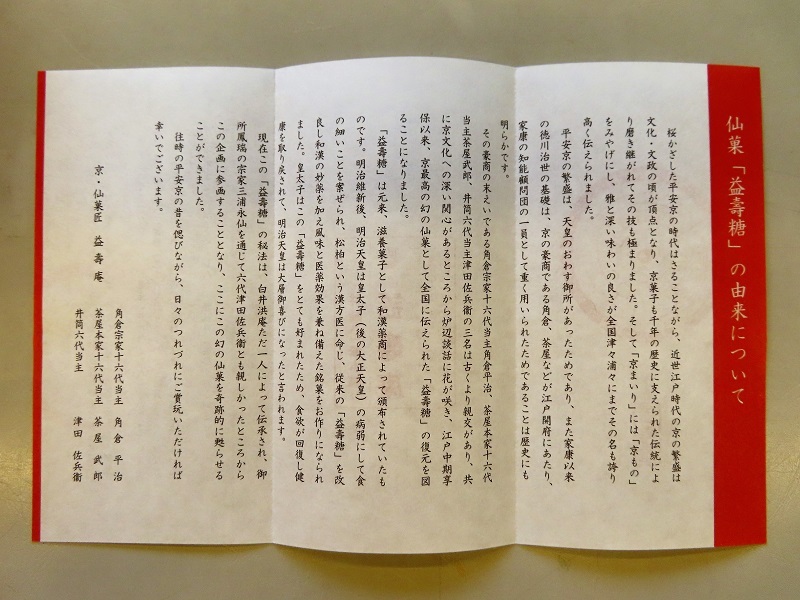 仙菓「益壽糖」の由来について
桜かざした平安京の時代はさることながら、近世江戸時代の京の繁盛は
文化・文政の頃が頂点となり、京菓子も千年の歴史に支えられた伝統によ
り磨き継がれてその技も極まりました。そして「京まいり」には「京もの」
をみやげにし、雅と深い味わいの良さが全国津々浦々にまでその名も誇り
高く伝えられました。
平安京の繁盛は、天皇のおわす御所があったためであり、また家康以来
の徳川治世の基礎は、京の豪商である角倉、茶屋などが江戸開府にあたり、
家康の知能顧問団の一員として重く用いられたためであることは歴史にも
明らかです。
その豪商の末えいである角倉宗家十六代当主角倉平治、茶屋本家十六代
当主茶屋武郎、井筒六代当主津田佐兵衛の三名は古くより親交があり、共
に京文化への深い関心があるところから炉辺談話に花が咲き、江戸中期享
保以来、京最高の幻の仙菓として全国に伝えられた「益壽糖」の復元を図
ることになりました。
「益壽糖」は元来、滋養菓子として和漢薬商によって頒布されていたも
のです。明治維新後、明治天皇は皇太子（後の大正天皇）の病弱にして食
の細いことを案ぜられ、松柏という漢方医に命じ、従来の「益壽糖」を改
良し和漢の妙薬を加え風味と医薬効果を兼ね備えた銘菓をお作りになられ
ました。皇太子はこの「益壽糖」をとても好まれたため、食欲が回復し健
康を取り戻されて、明治天皇は大層御喜びになったと言われます。
現在この「益壽糖」の秘法は、白井洪庵ただ一人によって伝承され、御
所鳳瑞の宗家三浦永仙を通じて六代津田佐兵衛とも親しかったところから
この企画に参画することとなり、ここにこの幻の仙菓を奇跡的に甦らせる
ことができました。
往時の平安京の昔を偲びながら、日々のつれづれにご賞玩いただければ
幸いでございます。
京・仙菓匠 益壽庵
角倉宗家十六代当主 角倉平治
茶屋本家十六代当主 茶屋武郎
井筒六代当主 津田佐兵衛